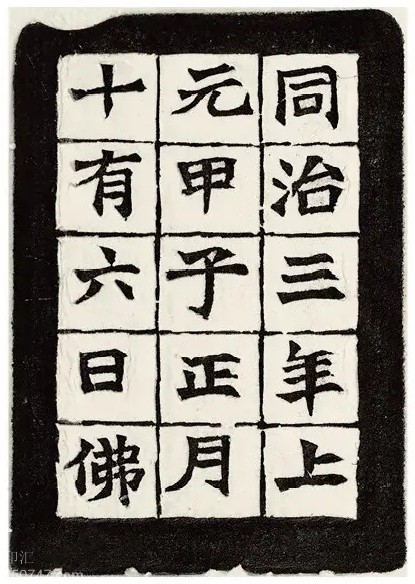 同治三年上
元甲子正月
十有六日佛
印汇